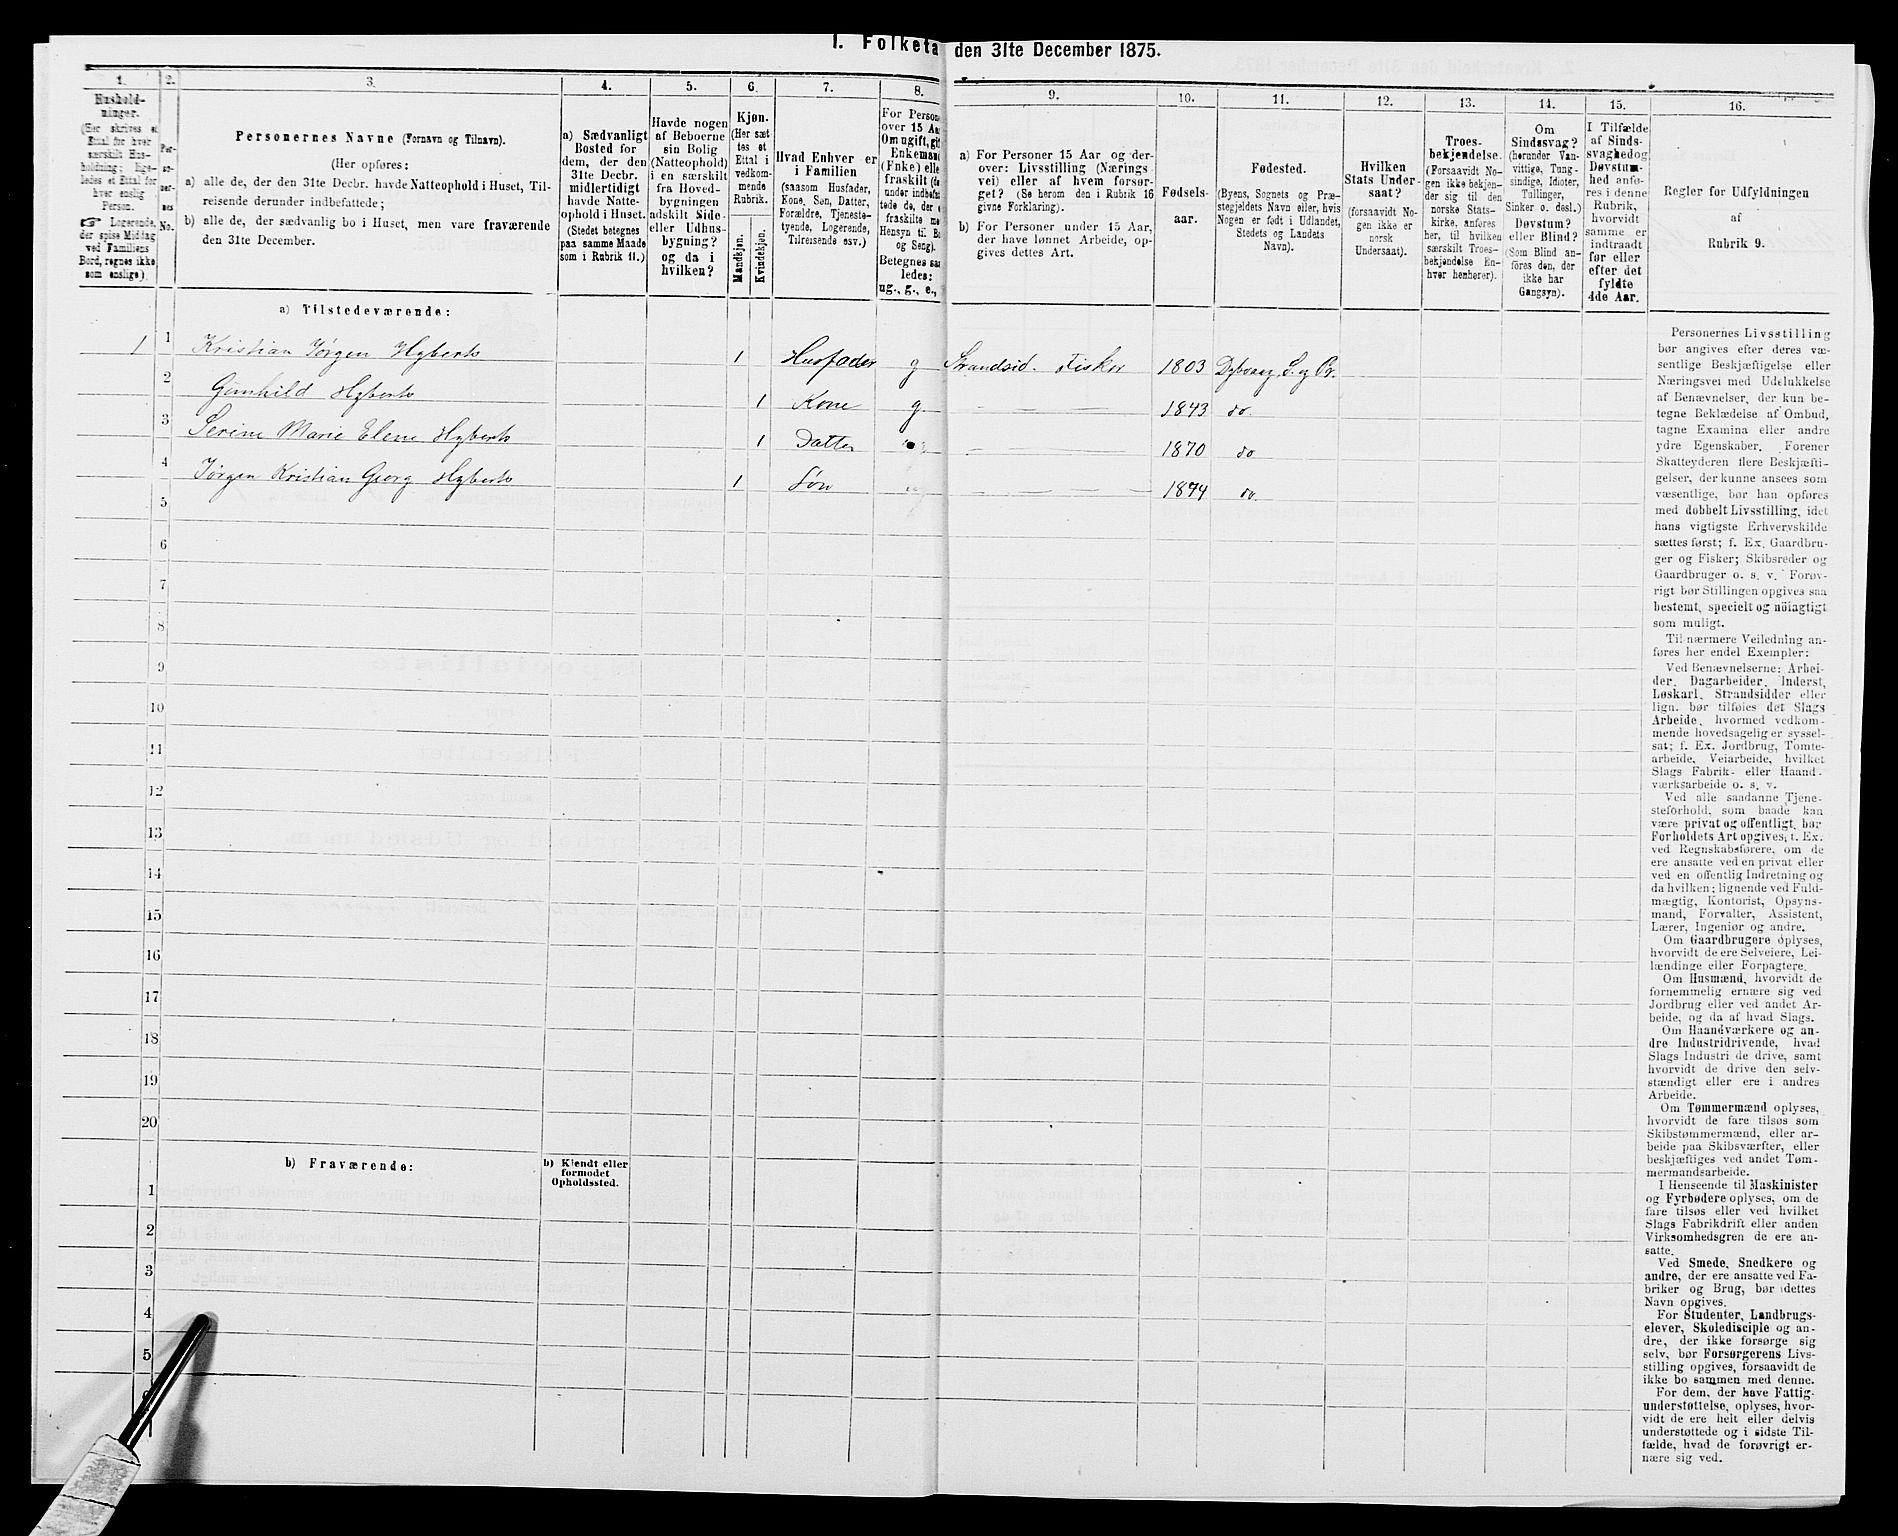 1. Folketa den 31te December 1875.
1.
Hushold-
ninger.
(Her skrives et
Ettal for hver
særskilt Hus-
holdning; lige-
ledes et Ettal for
hver enslig
Person.
☞ Logerende,
der spise Middag
ved Familiens
Bord, regnes ikke
som enslige).
2.
Per-
so-
ner-
nes
No.
3.
Personernes Navne (Fornavn og Tilnavn).
(Her opføres:
a) alle de, der den 31te Decbr. havde Natteophold i Huset, Til-
reisende derunder indbefattede;
b) alle de, der sædvanlig bo i Huset, men vare fraværende
den 31te December.
4.
a) Sædvanligt
Bosted for
dem, der den
31te Decbr.
midlertidigt
havde Natte-
ophold i Huset.
(Stedet betegnes
paa samme Maade
som i Rubrik 11.)
5.
Havde nogen
af Beboerne
sin Bolig
(Natteophold)
i en særskilt
fra Hoved-
bygningen
adskilt Side-
eller Udhus-
bygning?
og da i
hvilken?
6.
Kjøn.
(Her sæt-
tes et
Ettal i
vedkom-
mende
Rubrik.
Mandkjøn.
Kvindekjøn.
7.
Hvad Enhver er
i Familien
(saasom Husfader,
Kone, Søn, Datter,
Forældre, Tjeneste-
tyende, Logerende,
Tilreisende osv.)
8.
For Person
over 15 Aa
Om ugift, gif
Enkemand
(Enke) elle
fraskilt (de
under indbefat
tede de, der e
fraskilte me
Hensyn til Bo
og Seng).
Betegnes saa
ledes:
ug., g., e.,
9.
a) For Personer 15 Aar og der-
over: Livsstilling (Nærings-
vei) eller af hvem forsør-
get? (Se herom den i Rubrik 16
givne Forklaring).
b) For Personer under 15 Aar,
der have lønnet Arbeide, op-
gives dettes Art.
10.
Fødsels-
aar.
11.
Fødested.
(Byens, Sognets og Præ-
stegjeldets Navn eller, hvis
Nogen er født i Udlandet,
Stedets og Landets
Navn).
12.
Hvilken
Stats Under-
saat?
(forsaavidt No-
gen ikke er
norsk
Undersaat).
13.
Troes-
bekjendelse.
(Forsaavidt No-
gen ikke bekjen-
der sig til den
norske Stats-
kirke, anføres
her, til hvilken
særskilt Troes-
bekjendelse En-
hver henhører).
14.
Om
Sindssvag?
(herunder Van-
vittige, Tung-
sindige, Idioter,
Tullinger,
Sinker o. desl.)
Døvstum?
eller Blind?
(Som Blind an-
føres den, der
ikke har
Gangsyn).
15.
I Tilfælde
af Sinds-
svaghed og
Døvstum-
hed anfø-
res i denne
Rubrik,
hvorvidt
samme er
indtraadt
før eller
efter det
fyldte
4de Aar.
16.
Regler for Udfyldningen
af
Rubrik 9.
a) Tilstedeværende:
1 1 Kristian Jørgen Hyberts 1 Husfader g Strandsid. Fisker 1803 Dybvaag S. og Pr.
2 Gunhild Hyberts 1 Kone g 1843 do.
3 Serine Marie Elene Hyberts 1 Datter 1870 do
4 Jørgen Kristian Georg Hyberts 1 Søn 1874 do.
5
6
7
8
9
10
11
12
13
14
15
16
17
18
19
20
b) Fraværende:
b) Kjendt eller
formodet
Opholdssted.
1
2
3
4
5
6
Personernes Livsstilling
bør angives efter deres væ-
sentlige Beskjæftigelse eller
Næringsvei med Udelukkelse
af Benævnelser, der kun be-
tegne Beklædelse af Ombud,
tagne Examina eller andre
ydre Egenskaber. Forener
Skatteyderen flere Beskjæfti-
gelser, der kunne ansees som
væsentlige, bør han opføres
med dobbelt Livsstilling, idet
hans vigtigste Erhvervskilde
sættes først; f. Ex. Gaardbru-
ger og Fisker; Skibsreder og
Gaardbruger o. s. v. Forøv-
rigt bør Stillingen opgives saa
bestemt, specielt og nöiagtigt
som muligt.
Til nærmere Veiledning an-
føres her endel Exempler:
Ved Benævnelserne: Arbei-
der, Dagarbeider, Inderst,
Løskarl, Strandsidder eller
lign. bør tilføies det Slags
Arbeide, hvormed vedkom-
mende hovedsagelig er syssel-
sat; f. Ex. Jordbrug, Tomte-
arbeide, Veiarbeide, hvilket
Slags Fabrik- eller Haand-
værksarbeide o. s. v.
Ved alle saadanne Tjene-
steforhold, som baade kan
være privat og offentligt, bør
Forholdets Art opgives, t. Ex.
ved Regnskabsførere, om de
ere ansatte ved en privat eller
ved en offentlig Indretning og
da hvilken; lignende ved Fuld-
mægtig, Kontorist, Opsyns-
mand, Forvalter, Assistent,
Lærer, Ingeniør og andre.
Om Gaardbrugere oplyses,
hvorvidt de ere Selveiere, Lei-
lændinge eller Forpagtere.
Om Husmænd, hvorvidt de
fornemmelig ernære sig ved
Jordbrug eller ved andet Ar-
beide, og da af hvad Slags.
Om Haandværkere og an-
dre Industridrivende, hvad
Slags Industri de drive, samt
hvorvidt de drive den selv-
stændigt eller ere i andres
Arbeide.
Om Tømmermænd oplyses,
hvorvidt de fare tilsøs som
Skibstømmermænd, eller ar-
beide paa Skibsværfter, eller
beskjæftiges ved andet Tøm-
mermandsarbeide.
I Henseende til Maskinister
og Fyrbødere oplyses, om de
fare tilsøs eller ved hvilket
Slags Fabrikdrift eller anden
Virksomhedsgren de ere an-
satte.
Ved Smede, Snedkere og
andre, der ere ansatte ved Fa-
briker og Brug, bør dettes
Navn opgives.
For Studenter, Landbrugs-
elever, Skoledisciple og an-
dre, der ikke forsørge sig
selv, bør Forsørgerens Livs-
stilling opgives, forsaavidt de
ikke bo sammen med denne.
For dem, der have Fattig-
understøttelse, oplyses, hvor-
vidt de ere helt eller delvis
understøttede og i sidste Til-
fælde, hvad de forøvrigt er-
nære sig ved.